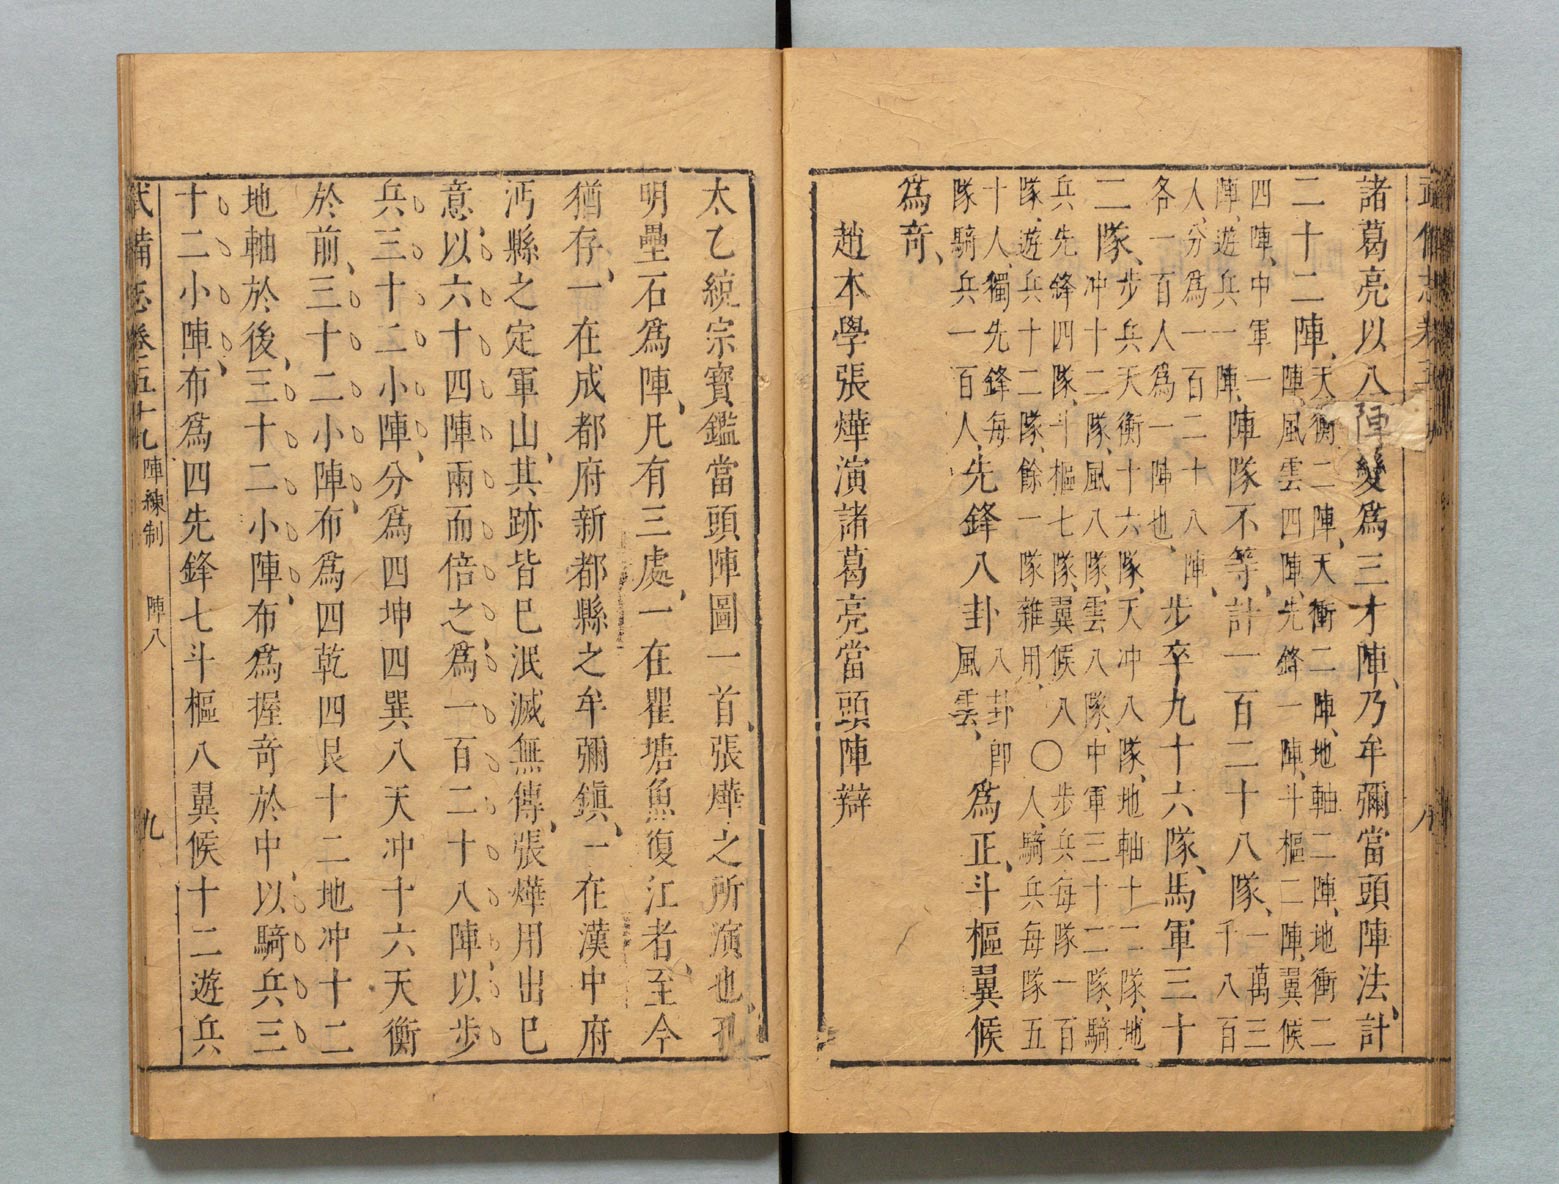 武備志卷五
八
諸葛亮以八陣變爲三才陣、乃牟彌當頭陣法、計
二十二陣、天衡二陣、天衝二陣、地軸二陣、地衝二
陣、風雲四陣、先鋒一陣、斗樞二陣、翼候
四陣、中軍一
陣、遊兵一陣、陣隊不等、計一百二十八隊、一萬三
千八百
人、分為一百二十八陣、
各一百人為一陣也、步卒九十六隊、馬軍三十
二隊、步兵天衡十六隊、天冲八隊、地軸十二隊、地
冲十二隊、風八隊、雲八隊、中軍三十二隊、騎
兵先鋒四隊、斗樞七隊、翼候八〇步兵每隊一百
隊、遊兵十二隊、餘一隊雜用、人、騎兵每隊五
十人、獨先鋒每
隊騎兵一百人、先鋒八卦八卦即
風雲、為正、斗樞翼候
爲奇、
趙本學張燁演諸葛亮當頭陣辯
太乙統宗寶鑑當頭陣圖一首、張燁之所演也、孔
明壘石爲陣、凡有三處、一在瞿塘魚復江者、至今
猶存、一在成都府新都縣之牟彌鎮、一在漢中府
沔縣之定軍山、其跡皆巳泯滅無傳、張燁用出巳
意、以六十四陣兩而倍之、爲一百二十八陣以步
兵三十二小陣、分爲四坤四巽八天冲十六天衡
於前、三十二小陣、布爲四乾四艮十二地冲十二
地軸於後、三十二小陣、布爲握奇於中、以騎兵三
十二小陣、布爲四先鋒七斗樞八翼候十二遊兵
武備志卷五十九 陣練制 陣八 九